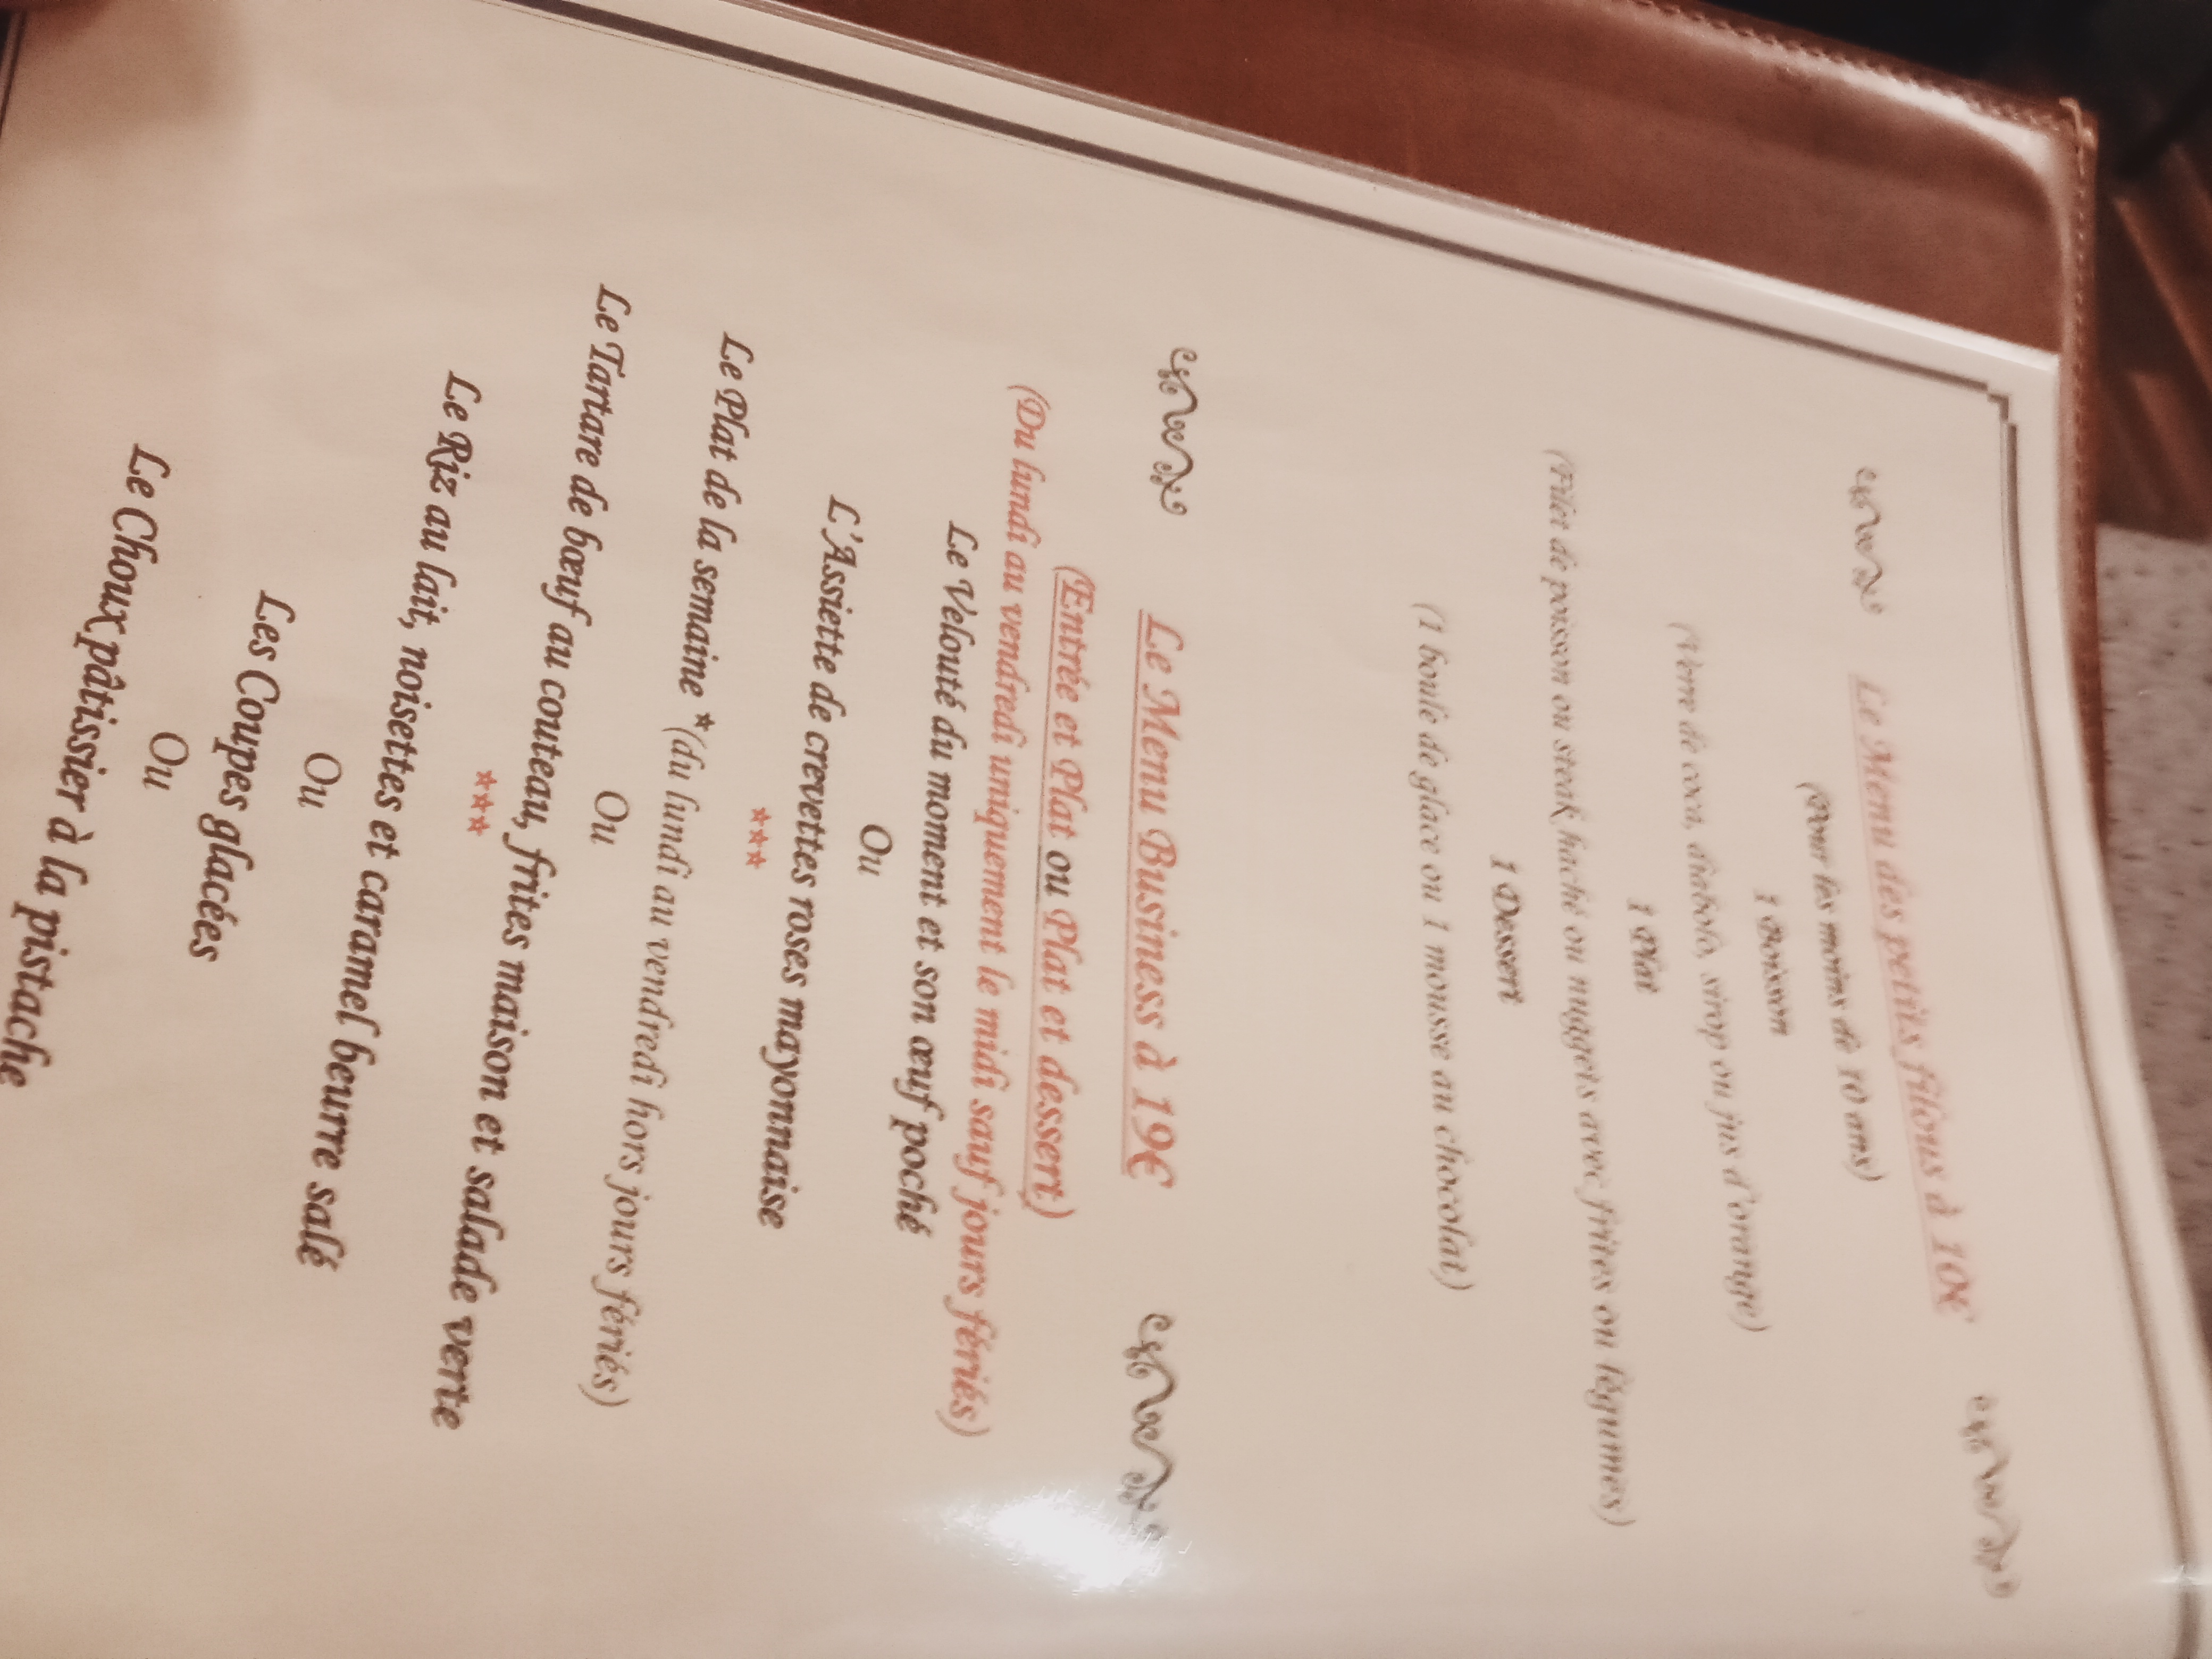 Le Menu des petits filous à 10€
(Pour les moins de 10 ans)
1 Boisson
(Verre de coca, diabolo, sirop ou jus d'orange)
1 Plat
(Filet de poisson ou steak haché ou nuggets avec frites ou légumes)
1 Dessert
(1 boule de glace ou 1 mousse au chocolat)
Le Menu Business à 19€
(Entrée et Plat ou Plat et dessert)
(Du lundi au vendredi uniquement le midi sauf jours fériés)
Le Velouté du moment et son œuf poché
Ou
L'Assiette de crevettes roses mayonnaise
***
Le Plat de la semaine *(du lundi au vendredi hors jours fériés)
Ou
Le Tartare de bœuf au couteau, frites maison et salade verte
***
Le Riz au lait, noisettes et caramel beurre salé
Ou
Les Coupes glacées
Ou
Le Choux pâtissier à la pistache